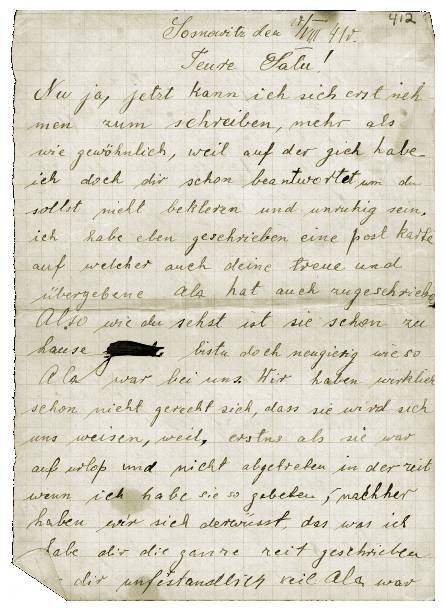 412
Sosnowitz den 10/VIII 41r.
Teure Sala!
Nu ja, jetzt kann ich sich erst neh
men zum schreiben, mehr als
wie gewöhnlich, weil auf der gich habe
ich doch dir schon beantwortet um du
sollst nicht bekleren und unruhig sein.
ich habe eben geschrieben eine post karte
auf welcher auch deine treue und
übergebene Ala hat auch zugeschrieben
Also wie du sehst ist sie schon zu
hause bistu doch neugierig wieso
Ala war bei uns. Wir haben wirklich
schon nicht gerecht sich, dass sie wird sich
uns weisen, weil, erstns als sie war
auf urlop und nicht abgetreten in der zeit
wenn ich habe sie so gebeten, nachher
haben wir sich derwusst, das was ich
habe dir die ganze zeit geschrieben
dir unfistandlich veil Ala war